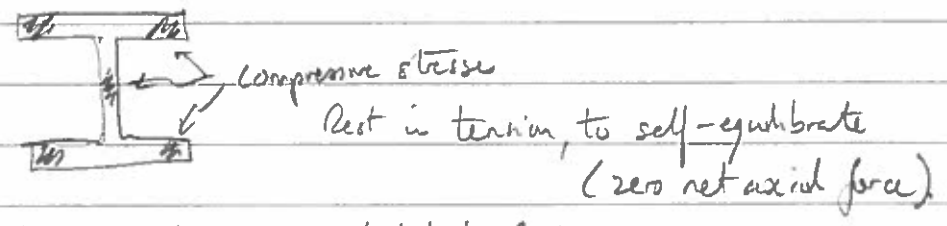 compressive stresses
Rest in tension, to self-equilibrate
(zero net axial force).